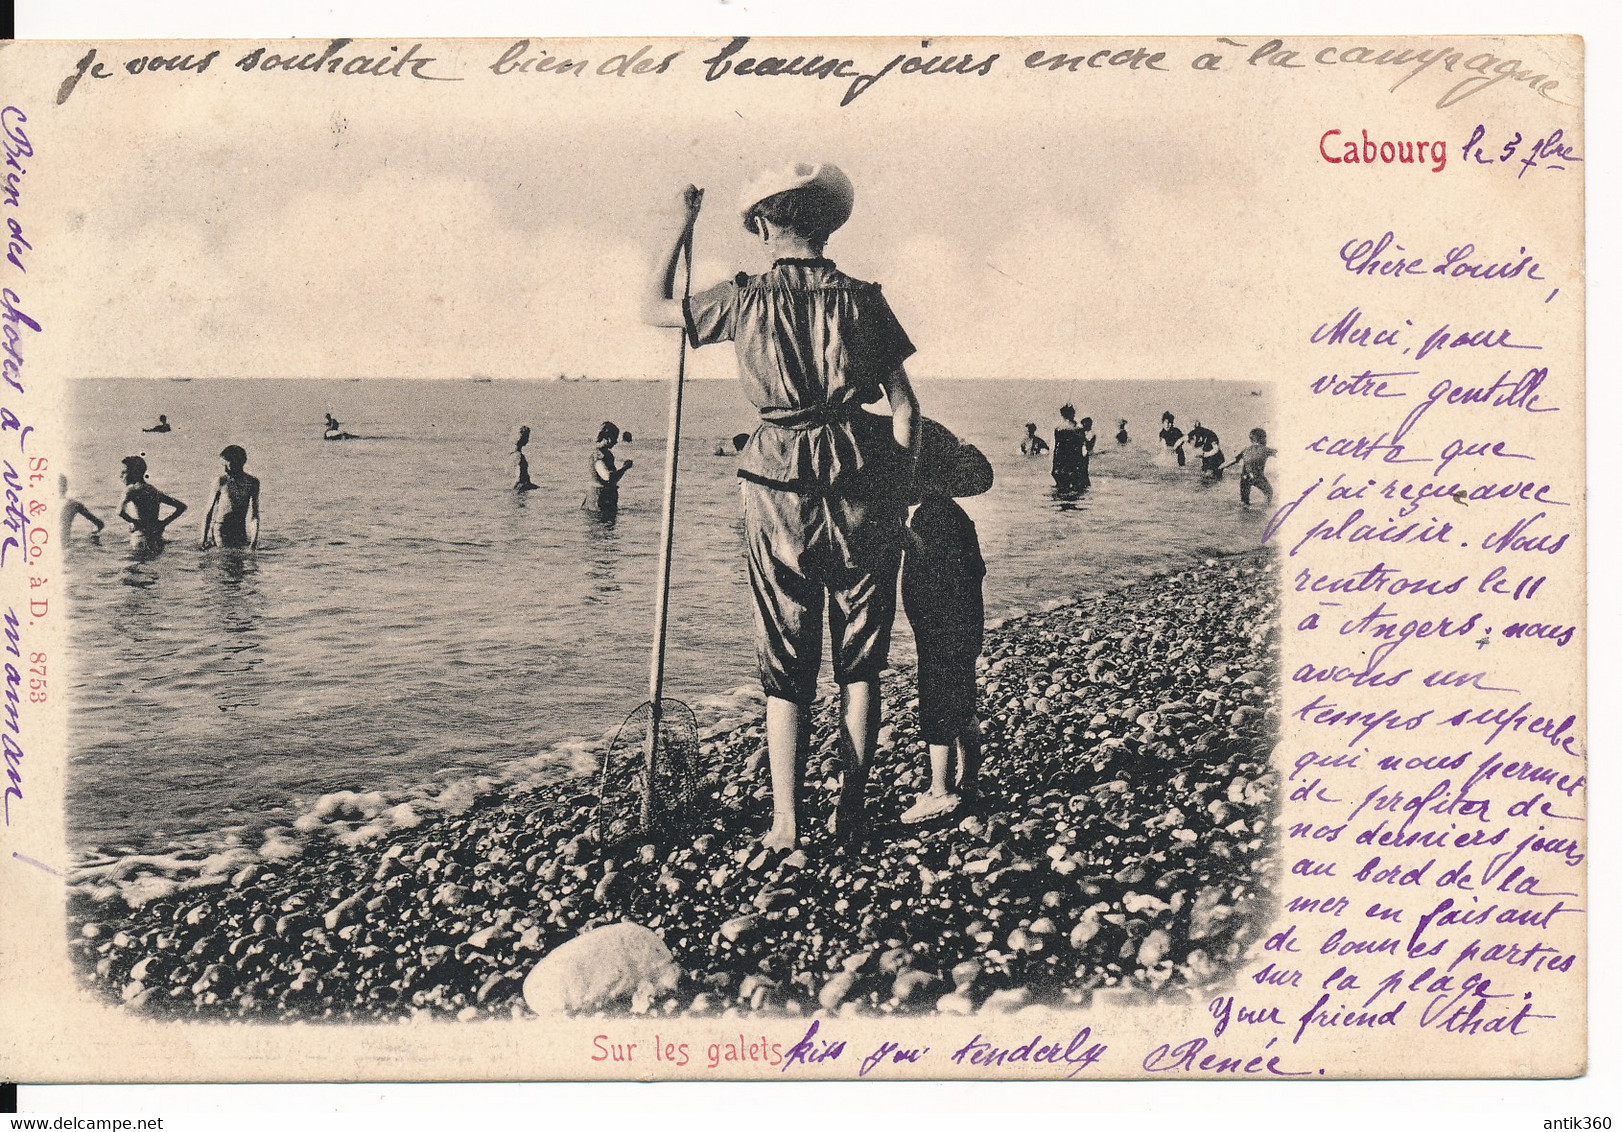 Je vous souhaite bien des beaux jours encore à la campagne
Cabourg le 5 7bre
Chère Louise,
Merci, pour
votre gentille
carte que
j'ai reçue avec
plaisir. Nous
rentrons le 11
à Angers; nous
avons un
temps superbe
qui nous permet
de profiter de
nos derniers jours
au bord de la
mer en faisant
de bonnes parties
sur la plage.
Your friend that
kiss you tenderly Renée.
Sur les galets
Bien des choses à votre maman
St. & Co. à D. 8753
delcampe.net
antik360